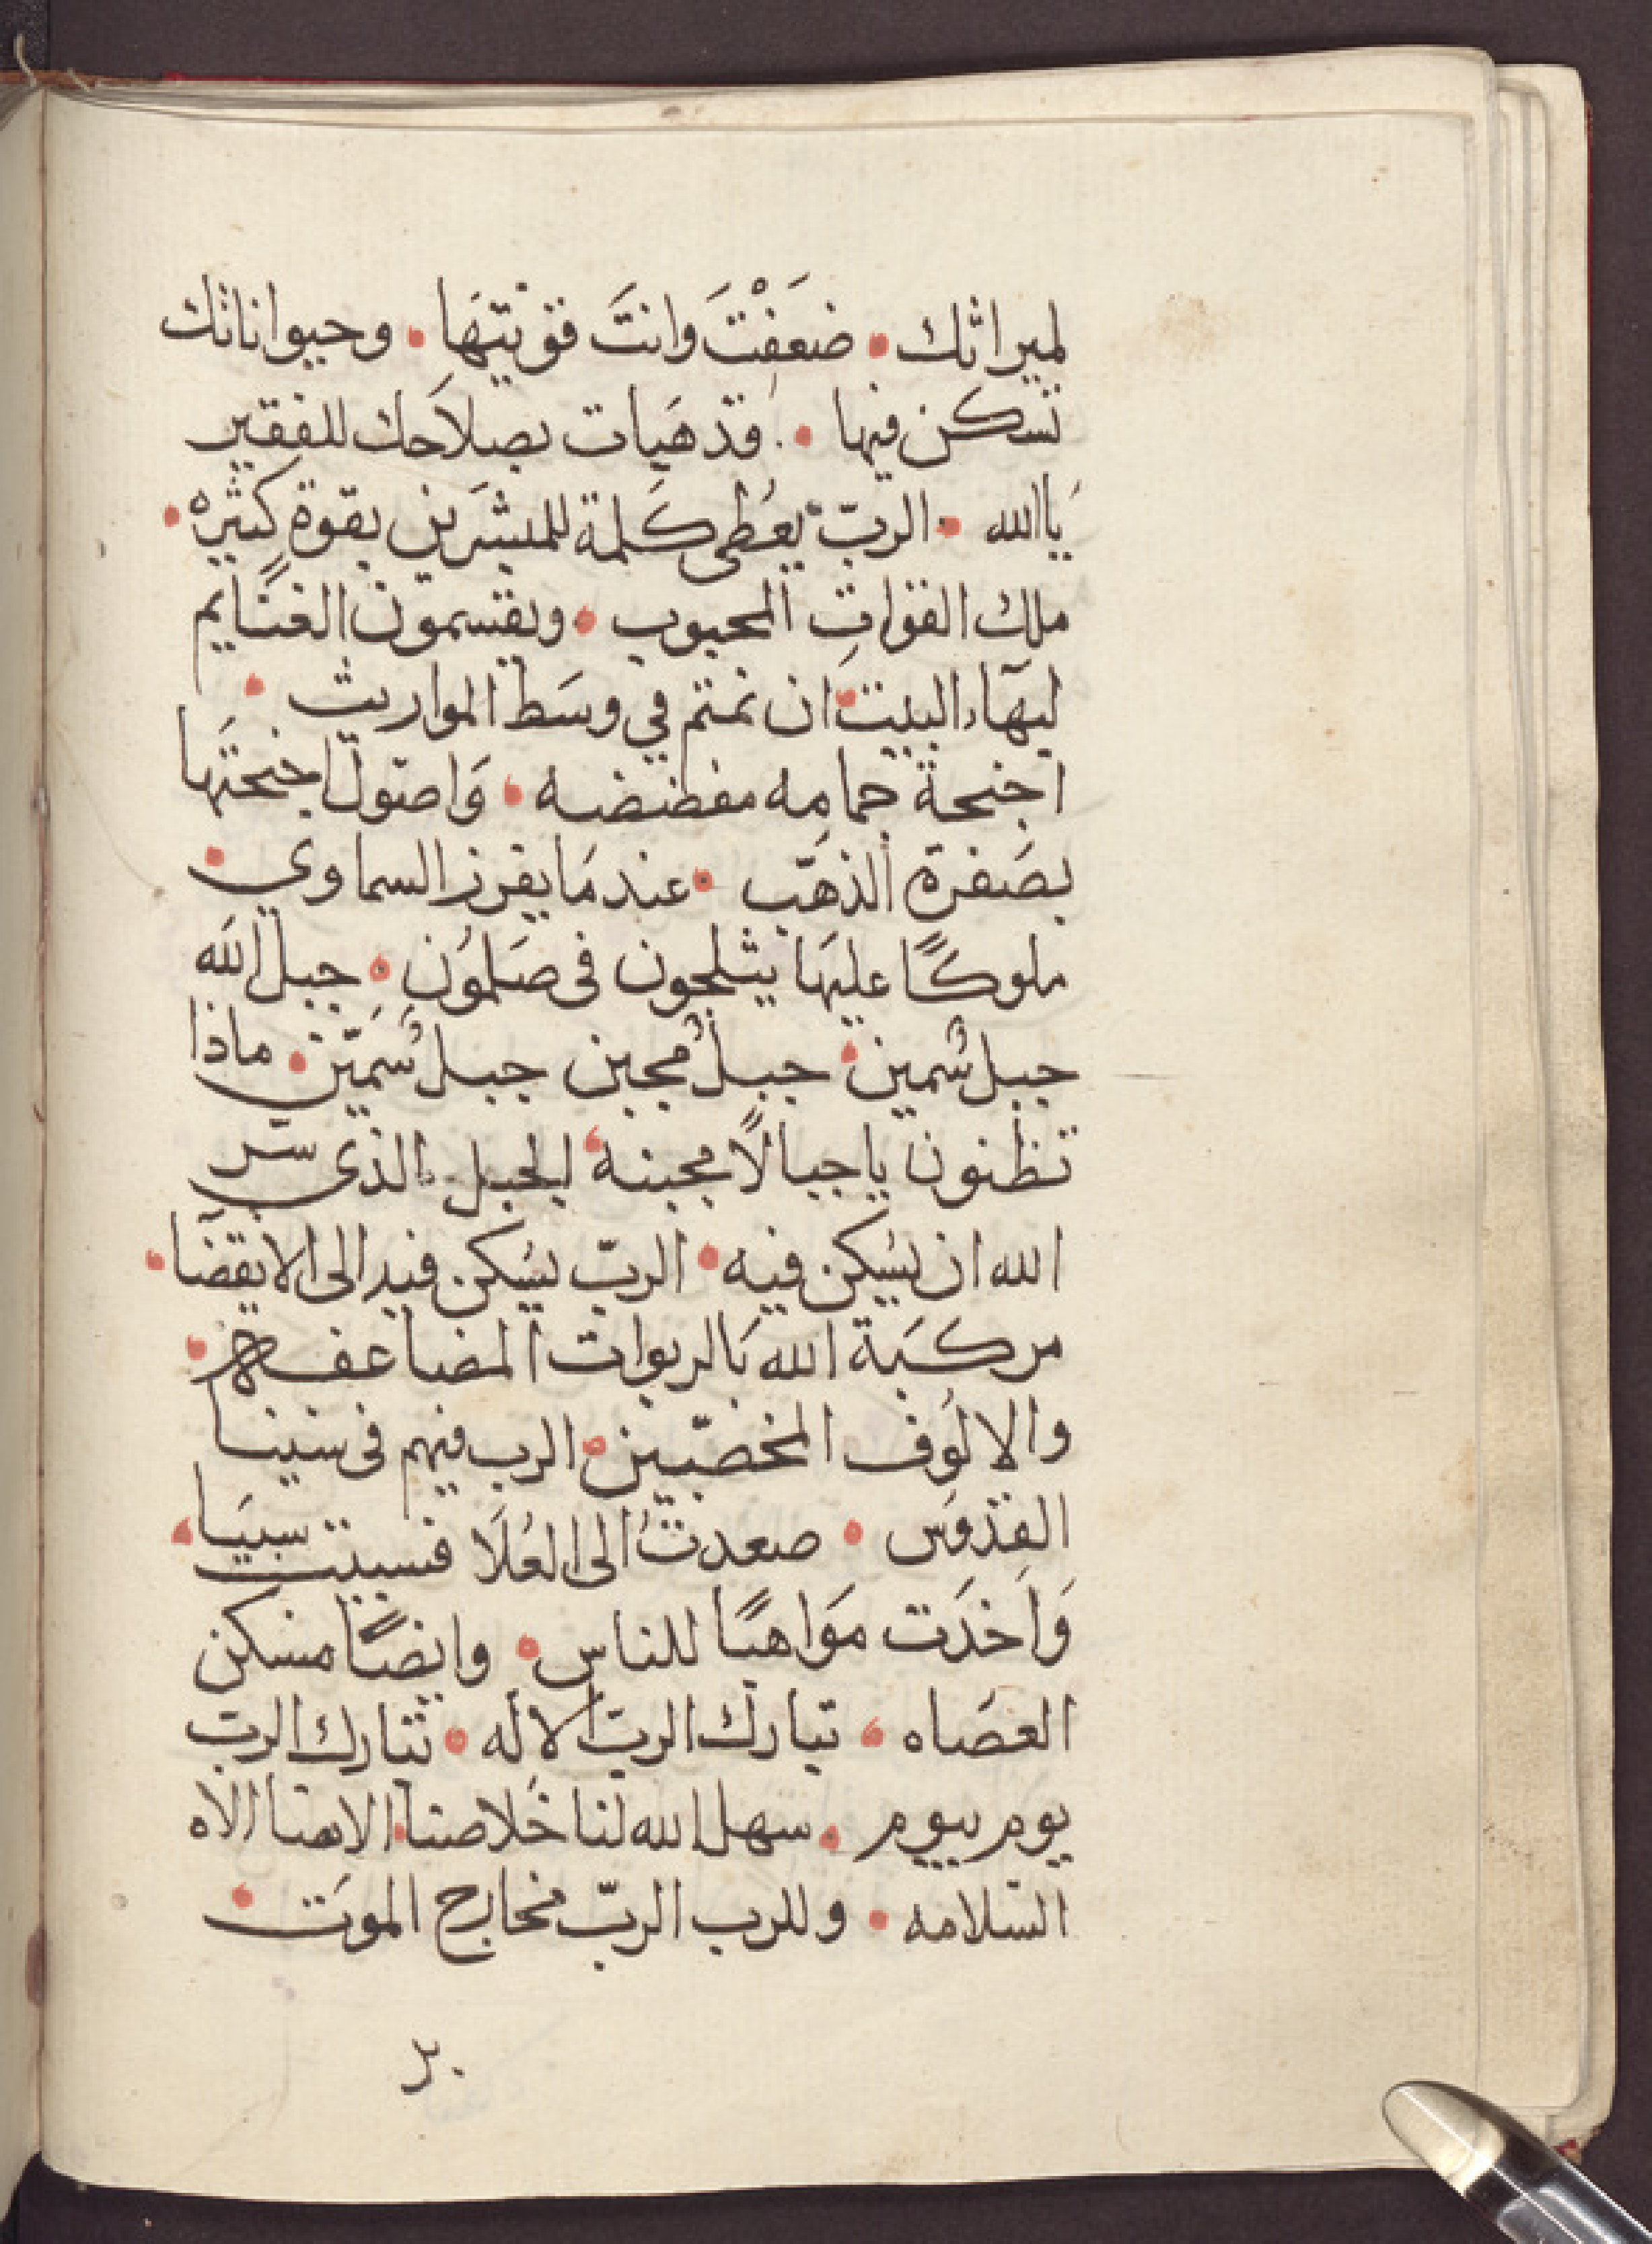 لميراثك • ضعَفْتَ وانتَ قويتهَا • وحيواناتك
تسكن فيها • قد هَيات بصلاَحك للفقير
يَاالله • الربّ يعُطى كلمة للمبشرَين بقوةٍ كثيره •
ملك القواتِ المحبوب • ويقسمون الغنَايم
لبهَاء البيت • ان نمتم في وسَط المواريث •
اجنحة حمامه مفضضه • وَاصول اجنحتَها
بصَفرة الذهَب • عند مَا يفرز السماوي •
ملوكًا عليهَا يثلجون فى صَلمُون • جبل الله
جبل سُمين • جبلُ مجبن جبل سُمَين • ماذا
تظنون ياجبالاً مجبنه • الجبل الذى سر
الله ان يسُكن فيه • الربّ يسُكن فيه الى الانقضَا •
مركبَة الله بَالربوات المضاعفه •
والالوُف المخصّبين • الرب فيهم فى سينا
القدوَس • صعدتُ الى العُلَا فسبيت سبيَا •
وَاَخذَت موَاهبًا للناس • وايضًا مسَكن
العصَاه • تبارك الربَ الاله • تبارك الربّ
يوم بيوم • سهل الله لنا خَلاصنا • الاهنا الاه
السّلامه • وللرب الربّ مخارج الموَت •
٢٠